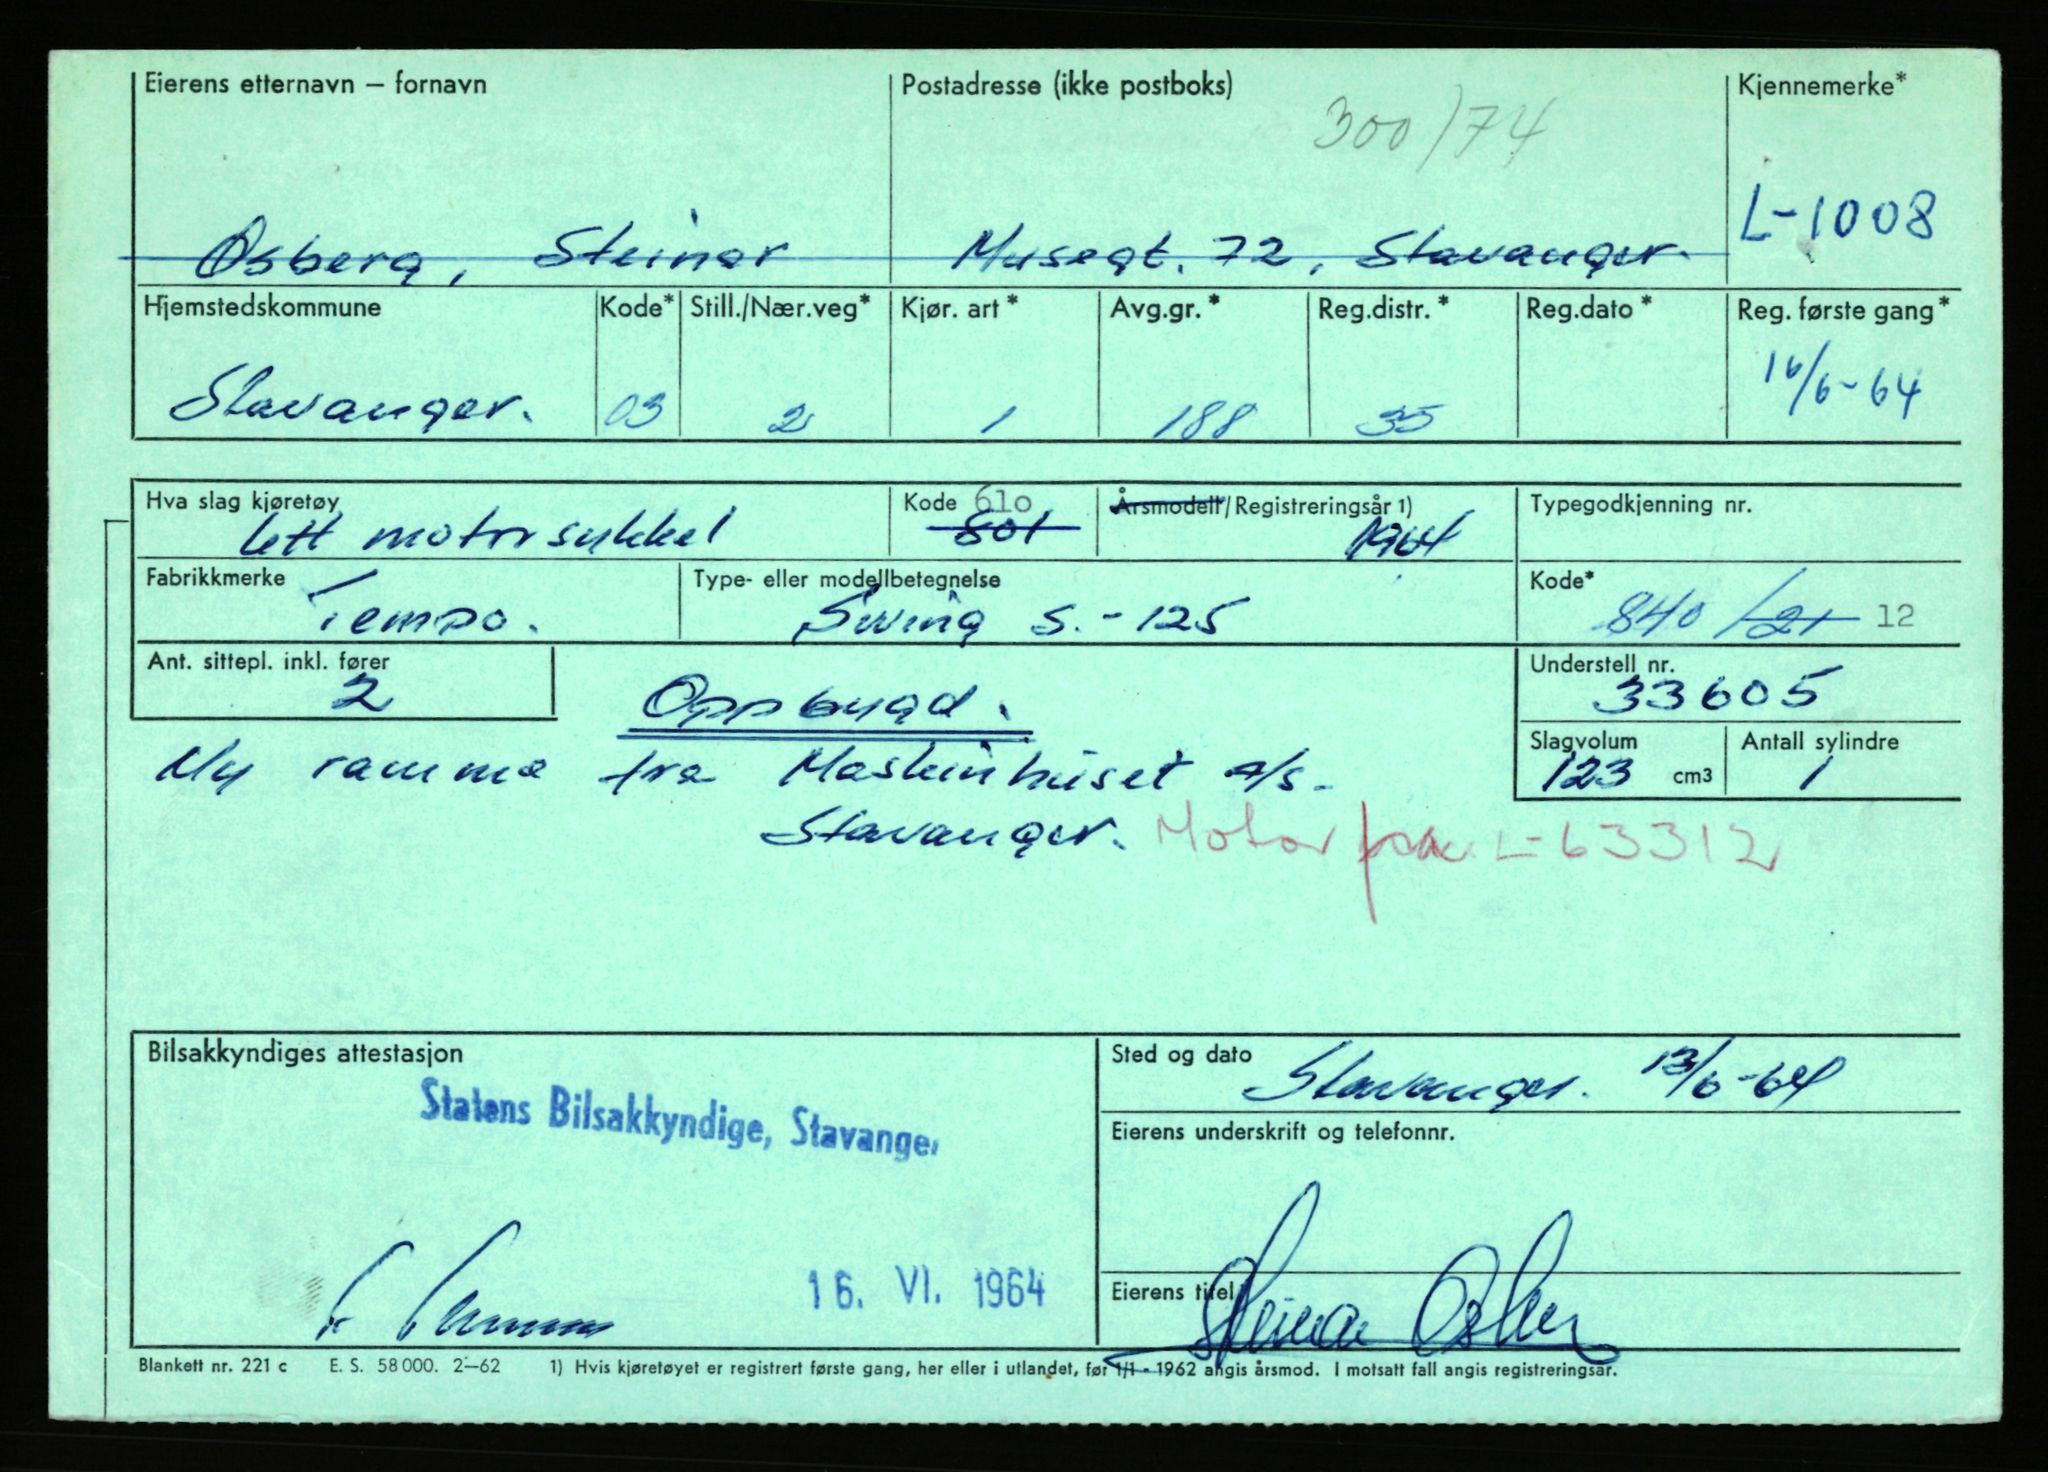 Eierens etternavn – fornavn Postadresse (ikke postboks) Kjennemerke*
300/74
L-1008
Osberg, Steinar Musegt. 72, Stavanger.
Hjemstedskommune Kode* Still./Nær.veg* Kjør. art* Avg.gr.* Reg.distr.* Reg.dato* Reg. første gang*
Stavanger. 03 2 1 188 35 16/6-64
Hva slag kjøretøy Kode 610 Årsmodell/Registreringsår 1) Typegodkjenning nr.
lett motorsykkel 801 1964
Fabrikkmerke Type- eller modellbetegnelse Kode*
Tempo. Swing S.-125 840/21 12
Ant. sittepl. inkl. fører Understell nr.
2 Oppbygd. 33605
Slagvolum Antall sylindre
Ny ramme fra Maskinhuset A/S. 123 cm3 1
Stavanger. Motor fra L-63312
Bilsakkyndiges attestasjon Sted og dato
Stavanger. 13/6-64
Statens Bilsakkyndige, Stavanger
Eierens underskrift og telefonnr.
16. VI. 1964
Eierens titel
Steinar Osberg
Blankett nr. 221 c E. S. 58 000. 2–62 1) Hvis kjøretøyet er registrert første gang, her eller i utlandet, før 1/1 - 1962 angis årsmod. I motsatt fall angis registreringsår.